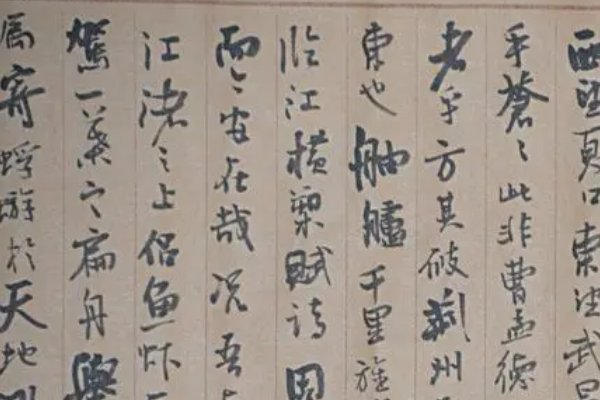 西望夏口東望武
乎蒼〻此非曹孟德
者乎方其破荊州
東也舳艫千里旌
臨江橫槊賦詩固
而今安在哉況吾
江渚之上侶魚虾
駕一葉之扁舟舉
屬寄蜉蝣於天地